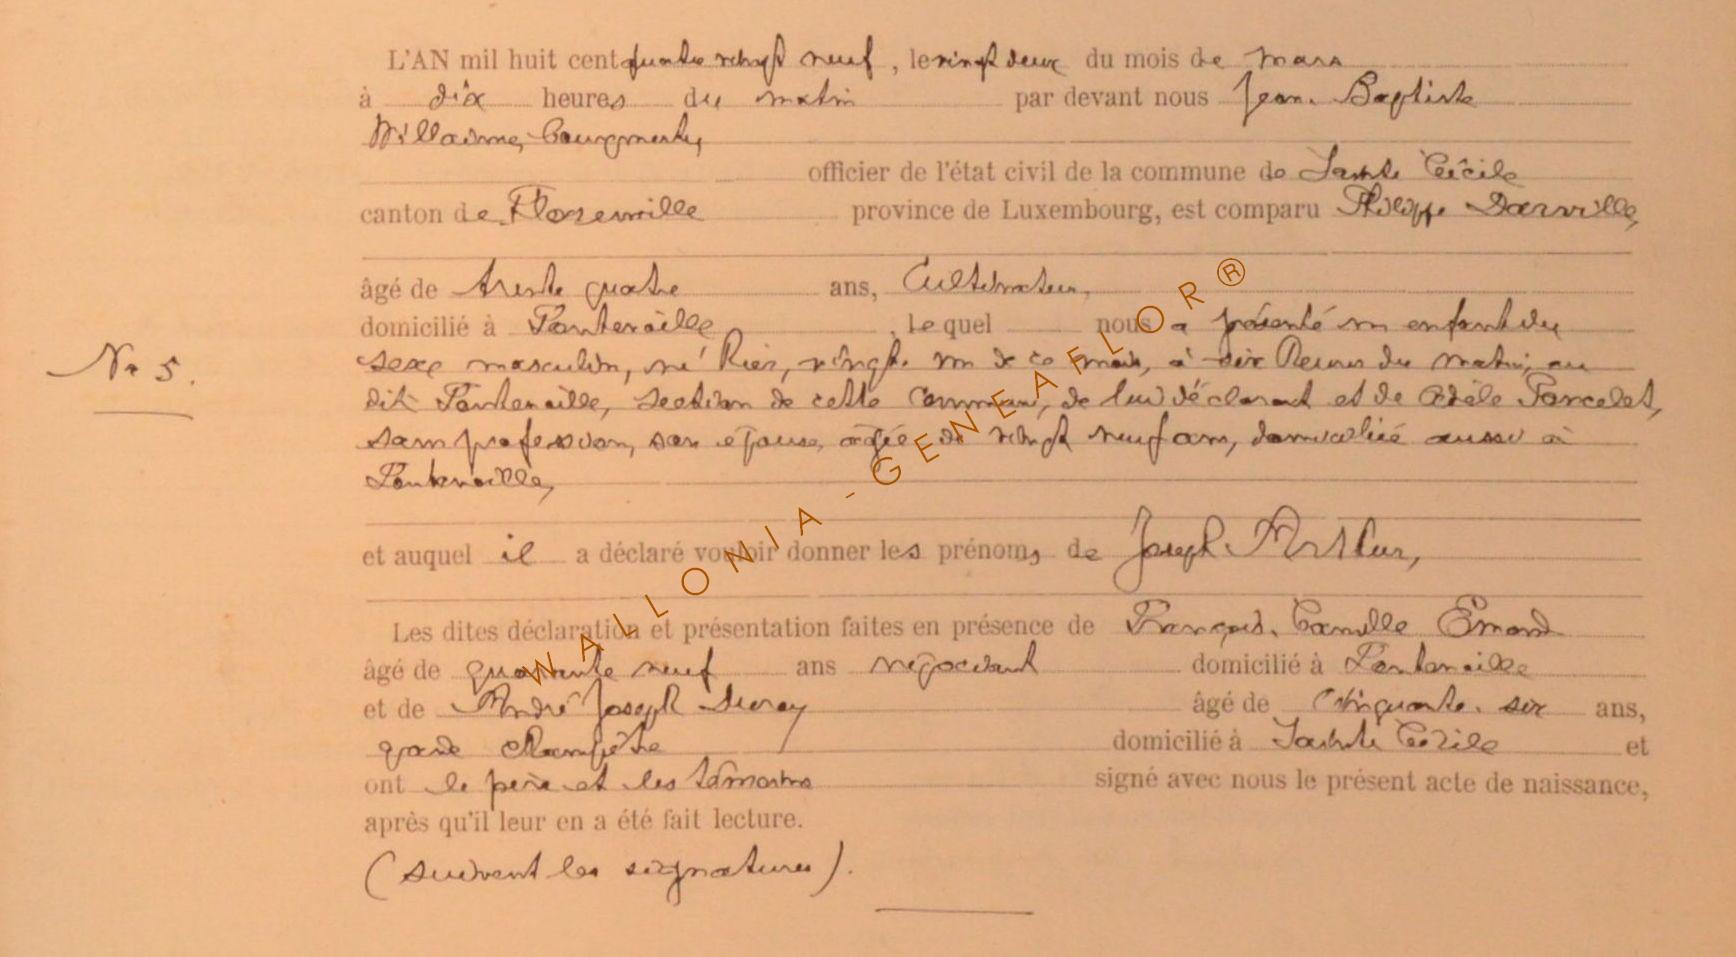 L'AN mil huit cent quatre vingt neuf, le vingt deux du mois de mars
à dix heures du matin par devant nous Jean-Baptiste
Willaime, Bourgmestre,
officier de l'état civil de la commune de Sainte Cécile
canton de Florenville province de Luxembourg, est comparu Philippe Darville,
âgé de trente quatre ans, Cultivateur,
domicilié à Fontenoille, lequel nous a présenté un enfant du
No 5.
sexe masculin, né hier, vingt-un de ce mois, à dix heures du matin, au
dit Fontenoille, section de cette commune, de lui déclarant et de Adèle Poncelet,
sans profession, son épouse, âgée de vingt neuf ans, domiciliée aussi à
Fontenoille,
et auquel il a déclaré vouloir donner les prénoms de Joseph-Arthur,
Les dites déclaration et présentation faites en présence de François-Camille Emond
âgé de quarante neuf ans négociant domicilié à Fontenoille
et de André Joseph Duroy âgé de Cinquante-six ans,
garde champêtre domicilié à Sainte Cécile et
ont le père et les témoins signé avec nous le présent acte de naissance,
après qu'il leur en a été fait lecture.
(suivent les signatures).
WALLONIA-GENEAFLOR®